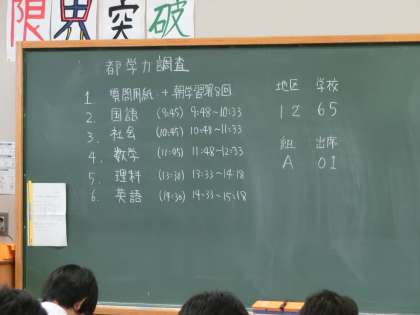 限界突破
都学力調査
1 質問用紙:+朝学習第8回
2. 国語 (9:45) 9:48~10:33
3. 社会 (10:45) 10:48~11:33
4. 数学 (11:45) 11:48~12:33
5. 理科 (13:30) 13:33~14:18
6. 英語 (14:30) 14:33~15:18
地区 学校
12 65
組 出席
A 01